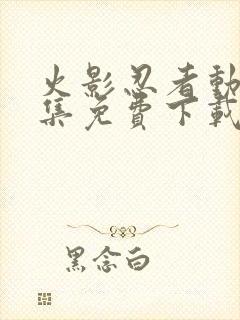 火影忍者動
集免費下載
黑念白